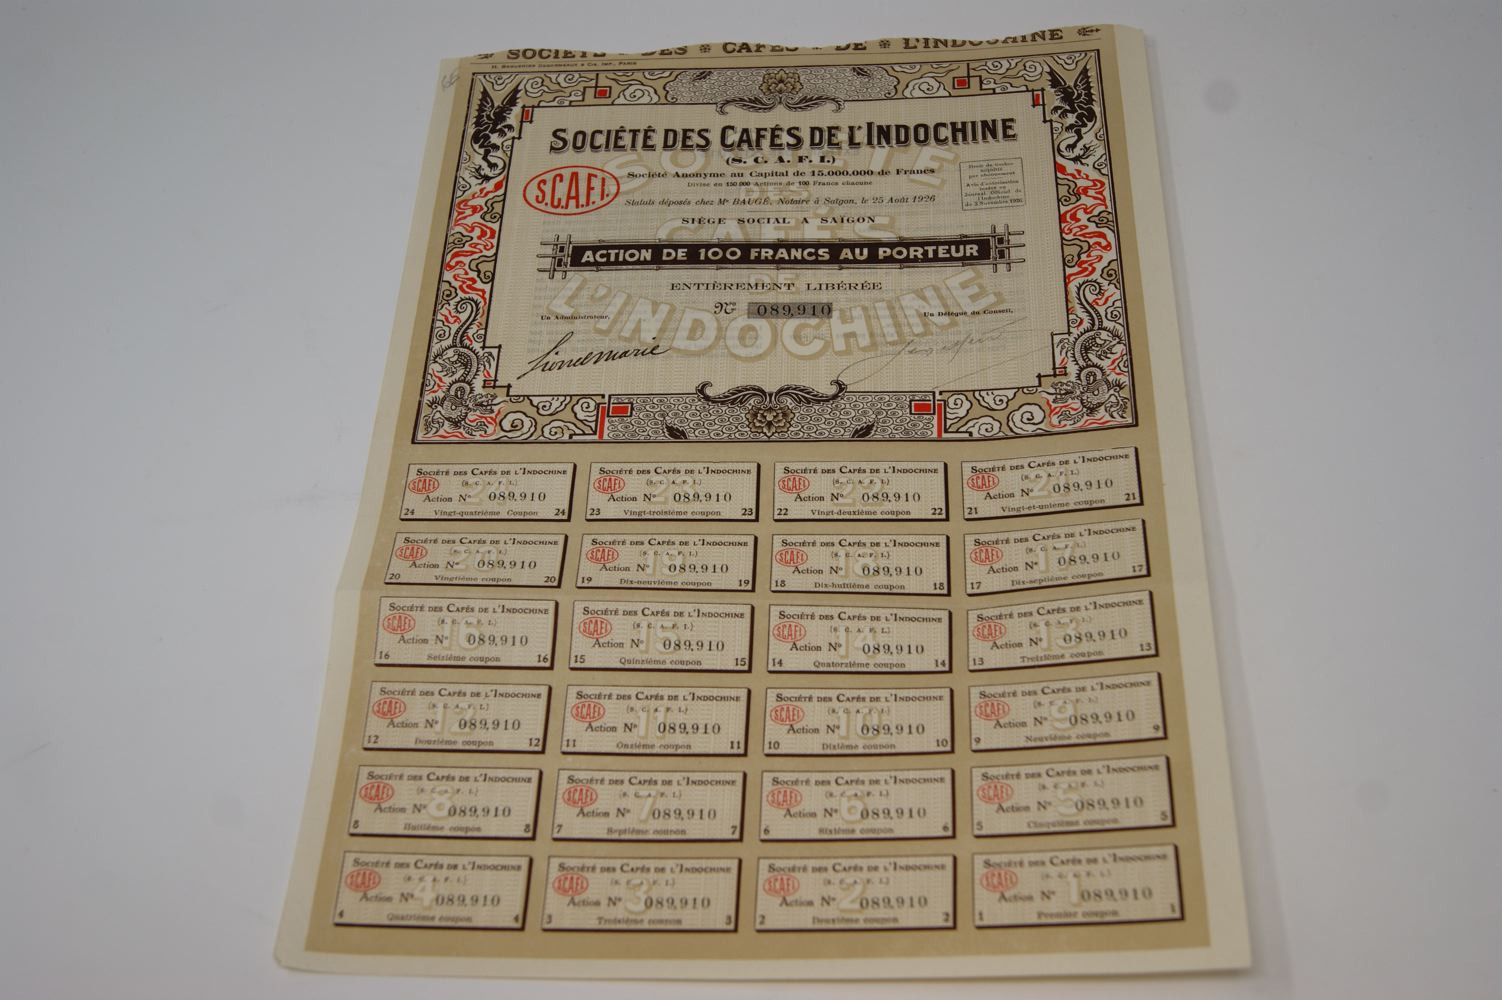 SOCIÉTÉ DES CAFÉS DE L'INDOCHINE
SOCIÉTÉ DES CAFÉS DE L'INDOCHINE
(S. C. A. F. I.)
S.C.A.F.I.
Société Anonyme au Capital de 15.000.000 de Francs
Divisé en 150.000 Actions de 100 Francs chacune
Statuts déposés chez Mᵉ BAUGÉ, Notaire à Saïgon, le 25 Août 1926
Droit de timbre
acquitté
par abonnement
Avis d'autorisation
inséré au
Journal Officiel de
l'Indochine
du 3 Novembre 1926
SIÈGE SOCIAL A SAÏGON
ACTION DE 100 FRANCS AU PORTEUR
ENTIÈREMENT LIBÉRÉE
Nº 089,910
Un Administrateur,
Un Délégué du Conseil,
SOCIÉTÉ
DES
CAFÉS
DE
L'INDOCHINE
SOCIÉTÉ DES CAFÉS DE L'INDOCHINE
(S. C. A. F. I.)
SCAFI
Action Nº 089,910
24 Vingt-quatrième Coupon 24
SOCIÉTÉ DES CAFÉS DE L'INDOCHINE
(S. C. A. F. I.)
SCAFI
Action Nº 089,910
23 Vingt-troisième coupon 23
SOCIÉTÉ DES CAFÉS DE L'INDOCHINE
(S. C. A. F. I.)
SCAFI
Action Nº 089,910
22 Vingt-deuxième coupon 22
SOCIÉTÉ DES CAFÉS DE L'INDOCHINE
(S. C. A. F. I.)
SCAFI
Action Nº 089,910
21 Vingt-et-unième coupon 21
SOCIÉTÉ DES CAFÉS DE L'INDOCHINE
(S. C. A. F. I.)
SCAFI
Action Nº 089,910
20 Vingtième coupon 20
SOCIÉTÉ DES CAFÉS DE L'INDOCHINE
(S. C. A. F. I.)
SCAFI
Action Nº 089,910
19 Dix-neuvième coupon 19
SOCIÉTÉ DES CAFÉS DE L'INDOCHINE
(S. C. A. F. I.)
SCAFI
Action Nº 089,910
18 Dix-huitième coupon 18
SOCIÉTÉ DES CAFÉS DE L'INDOCHINE
(S. C. A. F. I.)
SCAFI
Action Nº 089,910
17 Dix-septième coupon 17
SOCIÉTÉ DES CAFÉS DE L'INDOCHINE
(S. C. A. F. I.)
SCAFI
Action Nº 089,910
16 Seizième coupon 16
SOCIÉTÉ DES CAFÉS DE L'INDOCHINE
(S. C. A. F. I.)
SCAFI
Action Nº 089,910
15 Quinzième coupon 15
SOCIÉTÉ DES CAFÉS DE L'INDOCHINE
(S. C. A. F. I.)
SCAFI
Action Nº 089,910
14 Quatorzième coupon 14
SOCIÉTÉ DES CAFÉS DE L'INDOCHINE
(S. C. A. F. I.)
SCAFI
Action Nº 089,910
13 Treizième coupon 13
SOCIÉTÉ DES CAFÉS DE L'INDOCHINE
(S. C. A. F. I.)
SCAFI
Action Nº 089,910
12 Douzième coupon 12
SOCIÉTÉ DES CAFÉS DE L'INDOCHINE
(S. C. A. F. I.)
SCAFI
Action Nº 089,910
11 Onzième coupon 11
SOCIÉTÉ DES CAFÉS DE L'INDOCHINE
(S. C. A. F. I.)
SCAFI
Action Nº 089,910
10 Dixième coupon 10
SOCIÉTÉ DES CAFÉS DE L'INDOCHINE
(S. C. A. F. I.)
SCAFI
Action Nº 089,910
9 Neuvième coupon 9
SOCIÉTÉ DES CAFÉS DE L'INDOCHINE
(S. C. A. F. I.)
SCAFI
Action Nº 089,910
8 Huitième coupon 8
SOCIÉTÉ DES CAFÉS DE L'INDOCHINE
(S. C. A. F. I.)
SCAFI
Action Nº 089,910
7 Septième coupon 7
SOCIÉTÉ DES CAFÉS DE L'INDOCHINE
(S. C. A. F. I.)
SCAFI
Action Nº 089,910
6 Sixième coupon 6
SOCIÉTÉ DES CAFÉS DE L'INDOCHINE
(S. C. A. F. I.)
SCAFI
Action Nº 089,910
5 Cinquième coupon 5
SOCIÉTÉ DES CAFÉS DE L'INDOCHINE
(S. C. A. F. I.)
SCAFI
Action Nº 089,910
4 Quatrième coupon 4
SOCIÉTÉ DES CAFÉS DE L'INDOCHINE
(S. C. A. F. I.)
SCAFI
Action Nº 089,910
3 Troisième coupon 3
SOCIÉTÉ DES CAFÉS DE L'INDOCHINE
(S. C. A. F. I.)
SCAFI
Action Nº 089,910
2 Deuxième coupon 2
SOCIÉTÉ DES CAFÉS DE L'INDOCHINE
(S. C. A. F. I.)
SCAFI
Action Nº 089,910
1 Premier coupon 1